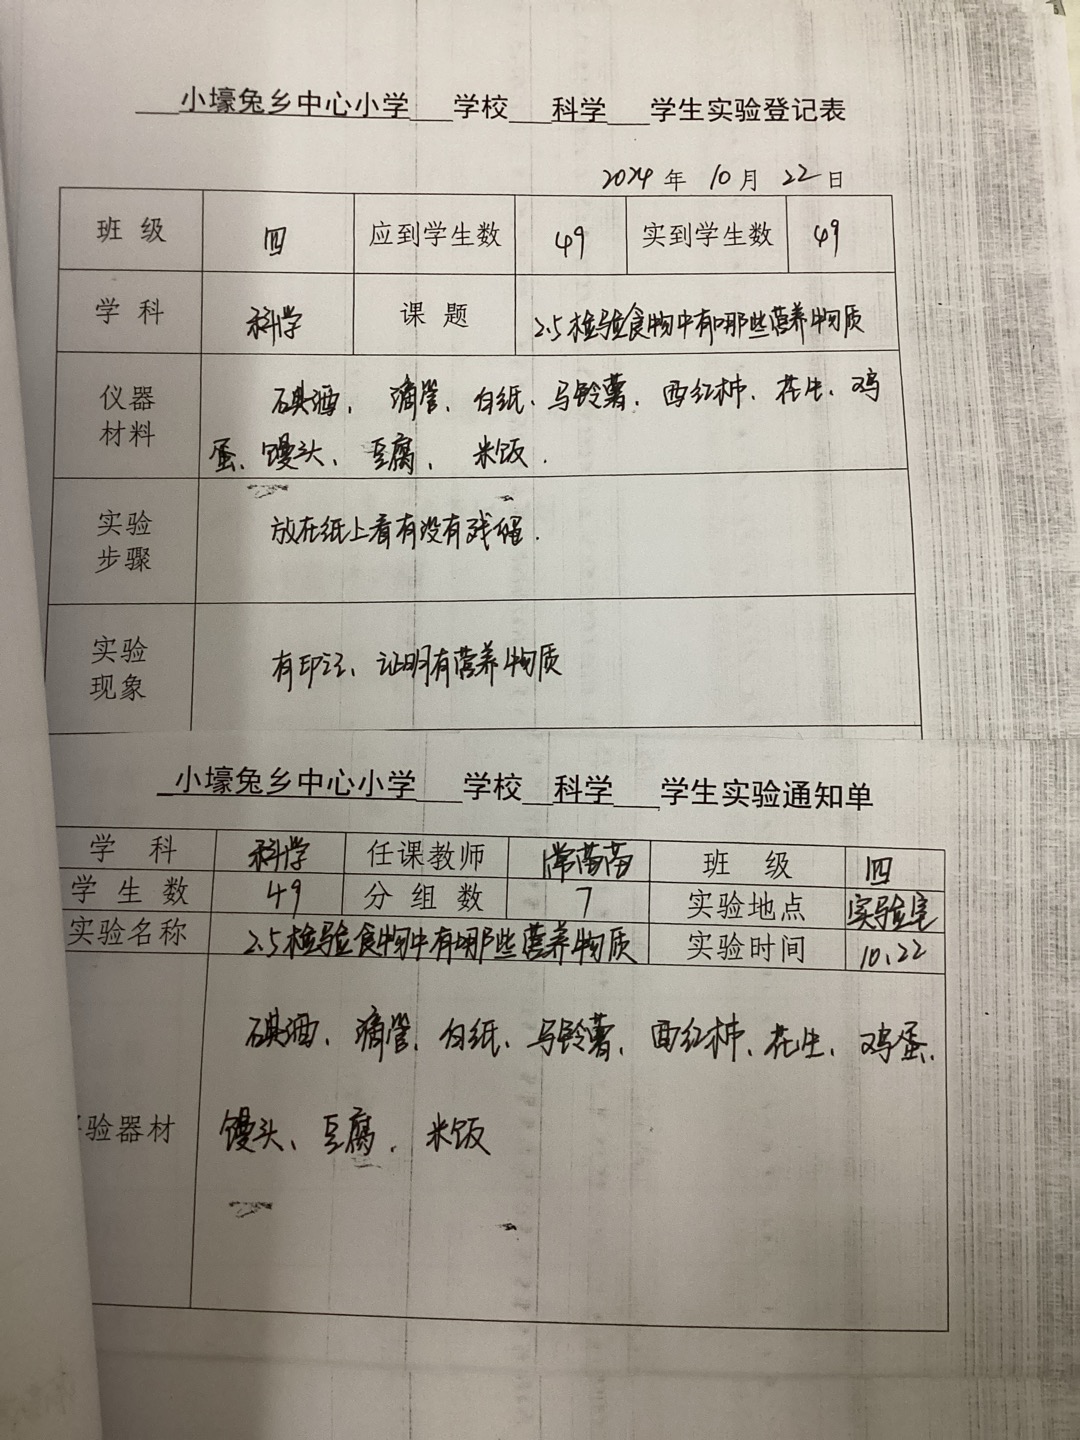 小壕兔乡中心小学 学校 科学 学生实验登记表
2024 年 10 月 22 日
班 级 四 应到学生数 49 实到学生数 49
学 科 科学 课 题 2.5检验食物中有哪些营养物质
仪器 碘酒、滴管、白纸、马铃薯、西红柿、花生、鸡
材料 蛋、馒头、豆腐、米饭.
实验 放在纸上看有没有残留.
步骤
实验 有印记、证明有营养物质
现象
小壕兔乡中心小学 学校 科学 学生实验通知单
学 科 科学 任课教师 常苗苗 班 级 四
学 生 数 49 分 组 数 7 实验地点 实验室
实验名称 2.5检验食物中有哪些营养物质 实验时间 10、22
碘酒、滴管、白纸、马铃薯、西红柿、花生、鸡蛋、
验器材 馒头、豆腐、米饭